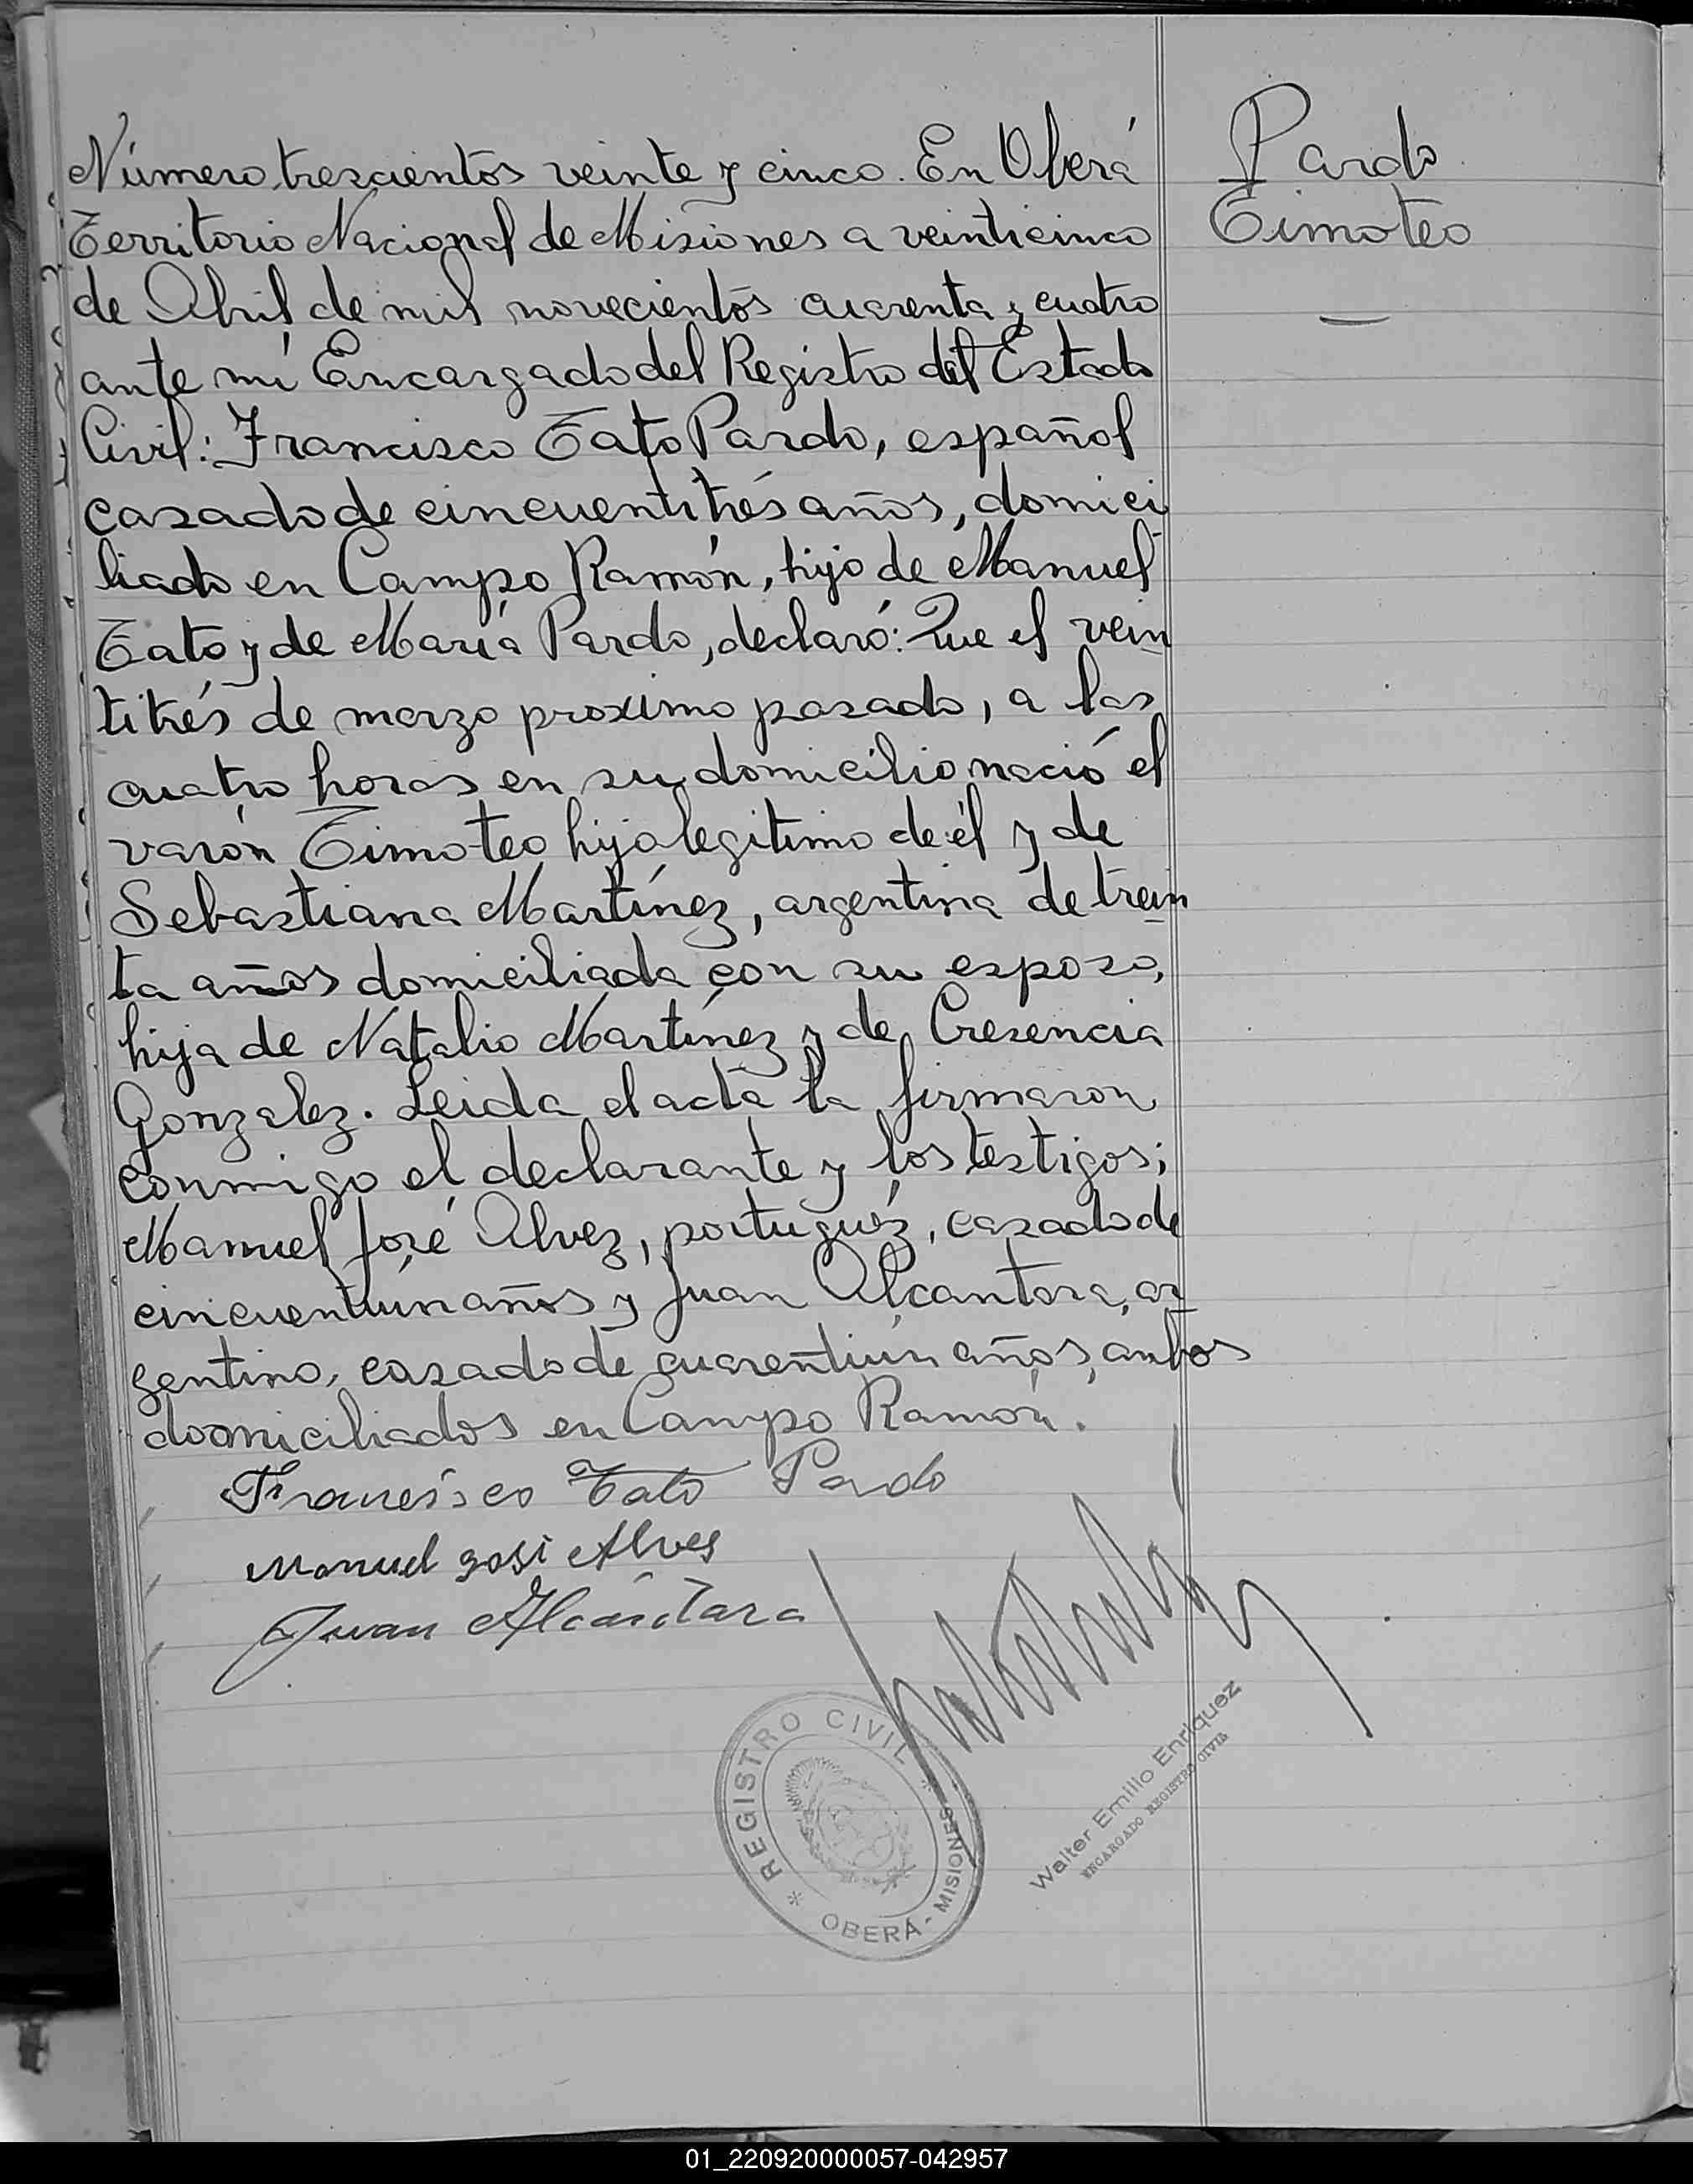 Pardo
Timoteo
Número trescientos veinte y cinco. En Oberá
Territorio Nacional de Misiones a veinticinco
de Abril de mil novecientos cuarenta y cuatro
ante mí Encargado del Registro del Estado
Civil: Francisco Tato Pardo, español
casado de cincuentitrés años, domici
liado en Campo Ramón, hijo de Manuel
Tato y de María Pardo, declaró: Que el vein
titrés de marzo proximo pasado, a las
cuatro horas en su domicilio nació el
varón Timoteo hijo legitimo de él y de
Sebastiana Martínez, argentina de trein
ta años domiciliada con su esposo,
hija de Natalio Martínez y de Cresencia
Gonzalez. Leida el acta la firmaron
conmigo el declarante y los testigos;
Manuel José Alvez, portuguéz, casado de
cincuentiún años y Juan Alcantara, ar
gentino, casado de cuarentiún años, ambos
domiciliados en Campo Ramón.
Francisco Tato Pardo
Manuel José Alves
Juan Alcántara
REGISTRO CIVIL
OBERÁ - MISIONES
Walter Emilio Enriquez
ENCARGADO REGISTRO CIVIL
01_220920000057-042957